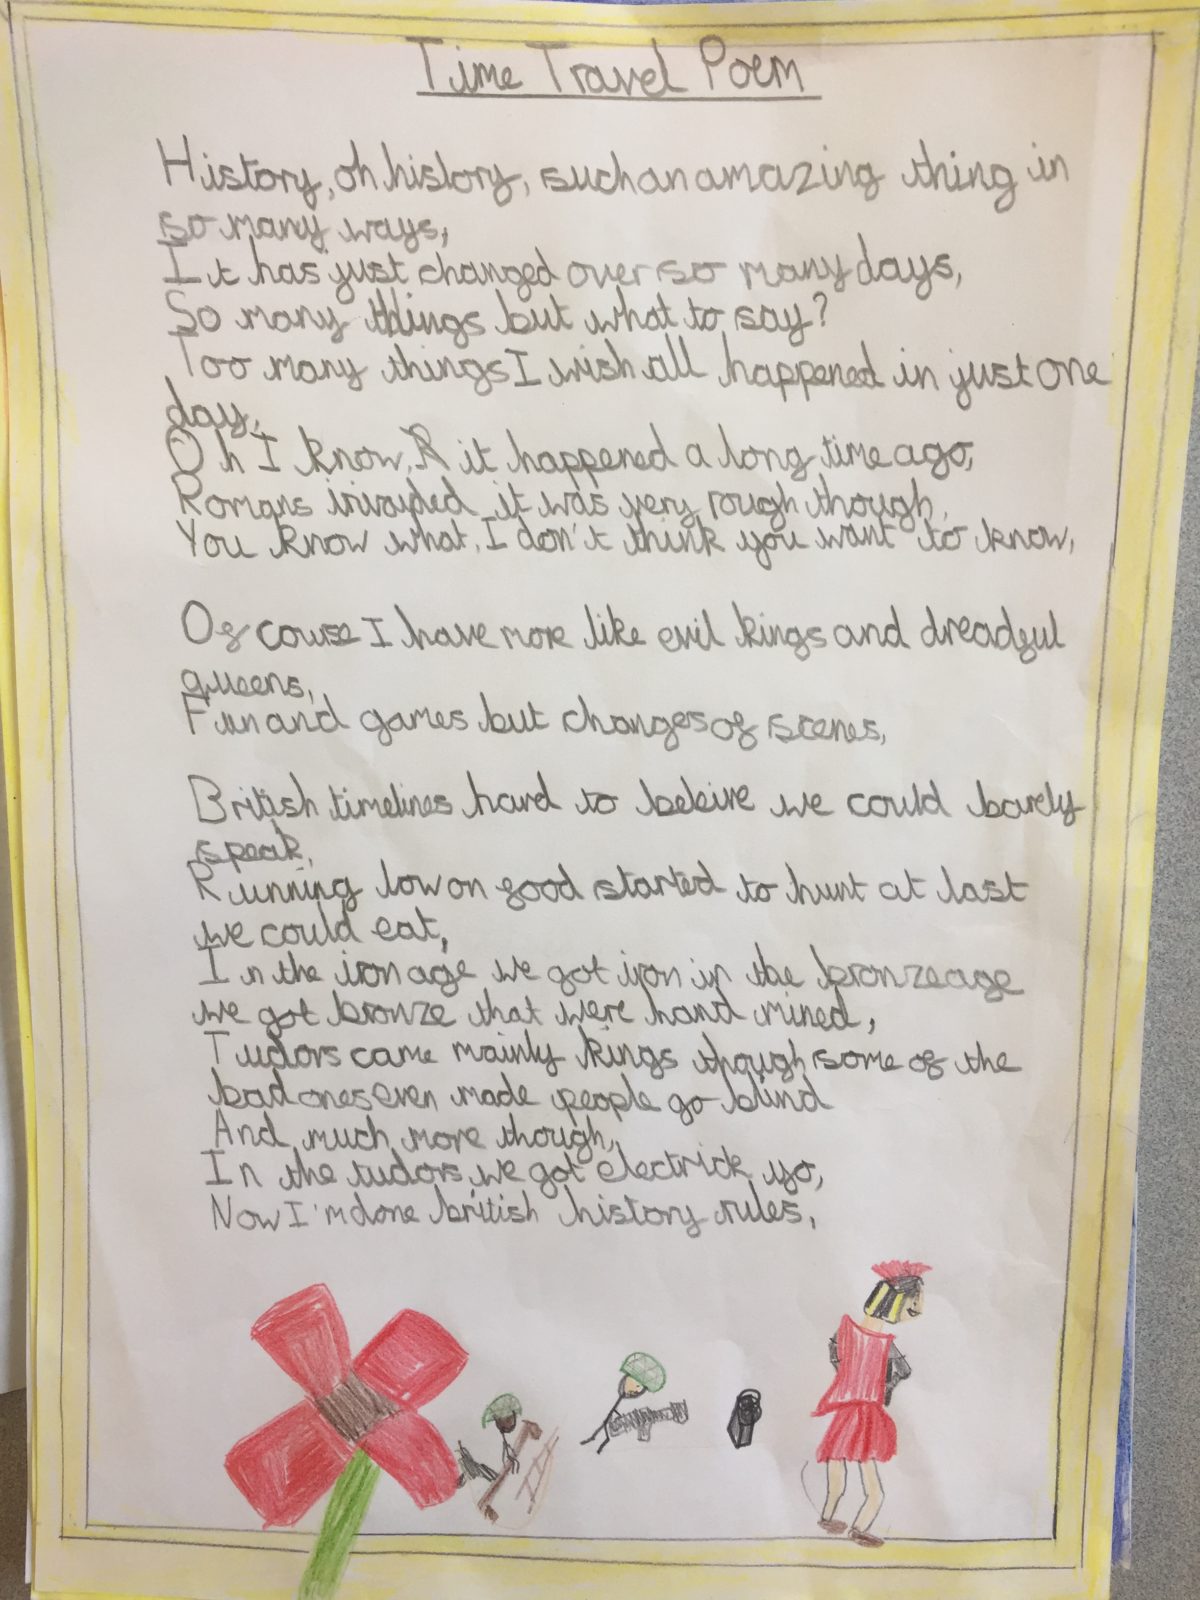 Time Travel Poem
History, oh history, such an amazing thing in
so many ways,
It has just changed over so many days,
So many things but what to say?
Too many things I wish all happened in just one
day,
Oh I know, R it happened a long time ago,
Romans invaded it was very rough though,
You know what, I don't think you want to know,
Of course I have more like evil kings and dreadful
queens,
Fun and games but changes of scenes,
British timelines hard to beleive we could barely
speak,
Running low on food started to hunt at last
we could eat,
In the iron age we got iron in the bronze age
we got bronze that were hand mined,
Tudors came mainly kings though some of the
bad ones even made people go blind
And much more though,
In the tudors we got electrick yo,
Now I'm done british history rules,